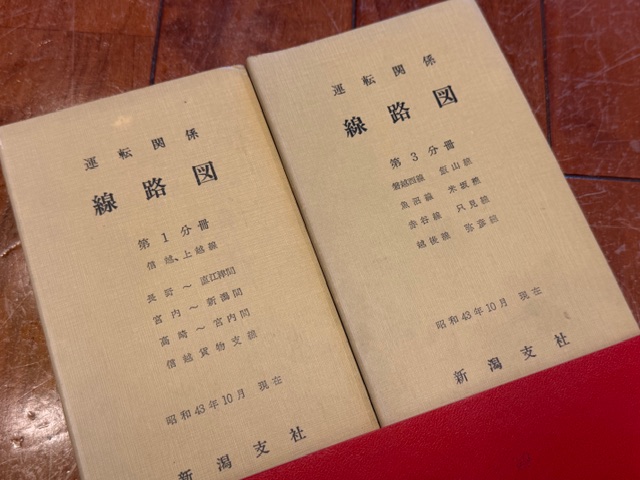 運転関係
線路図
第1分冊
信越、上越線
長野～直江津間
宮内～新潟間
高崎～宮内間
信越貨物支線
昭和43年10月 現在
新潟支社
運転関係
線路図
第3分冊
磐越西線 飯山線
魚沼線 米坂線
赤谷線 只見線
越後線 弥彦線
昭和43年10月 現在
新潟支社